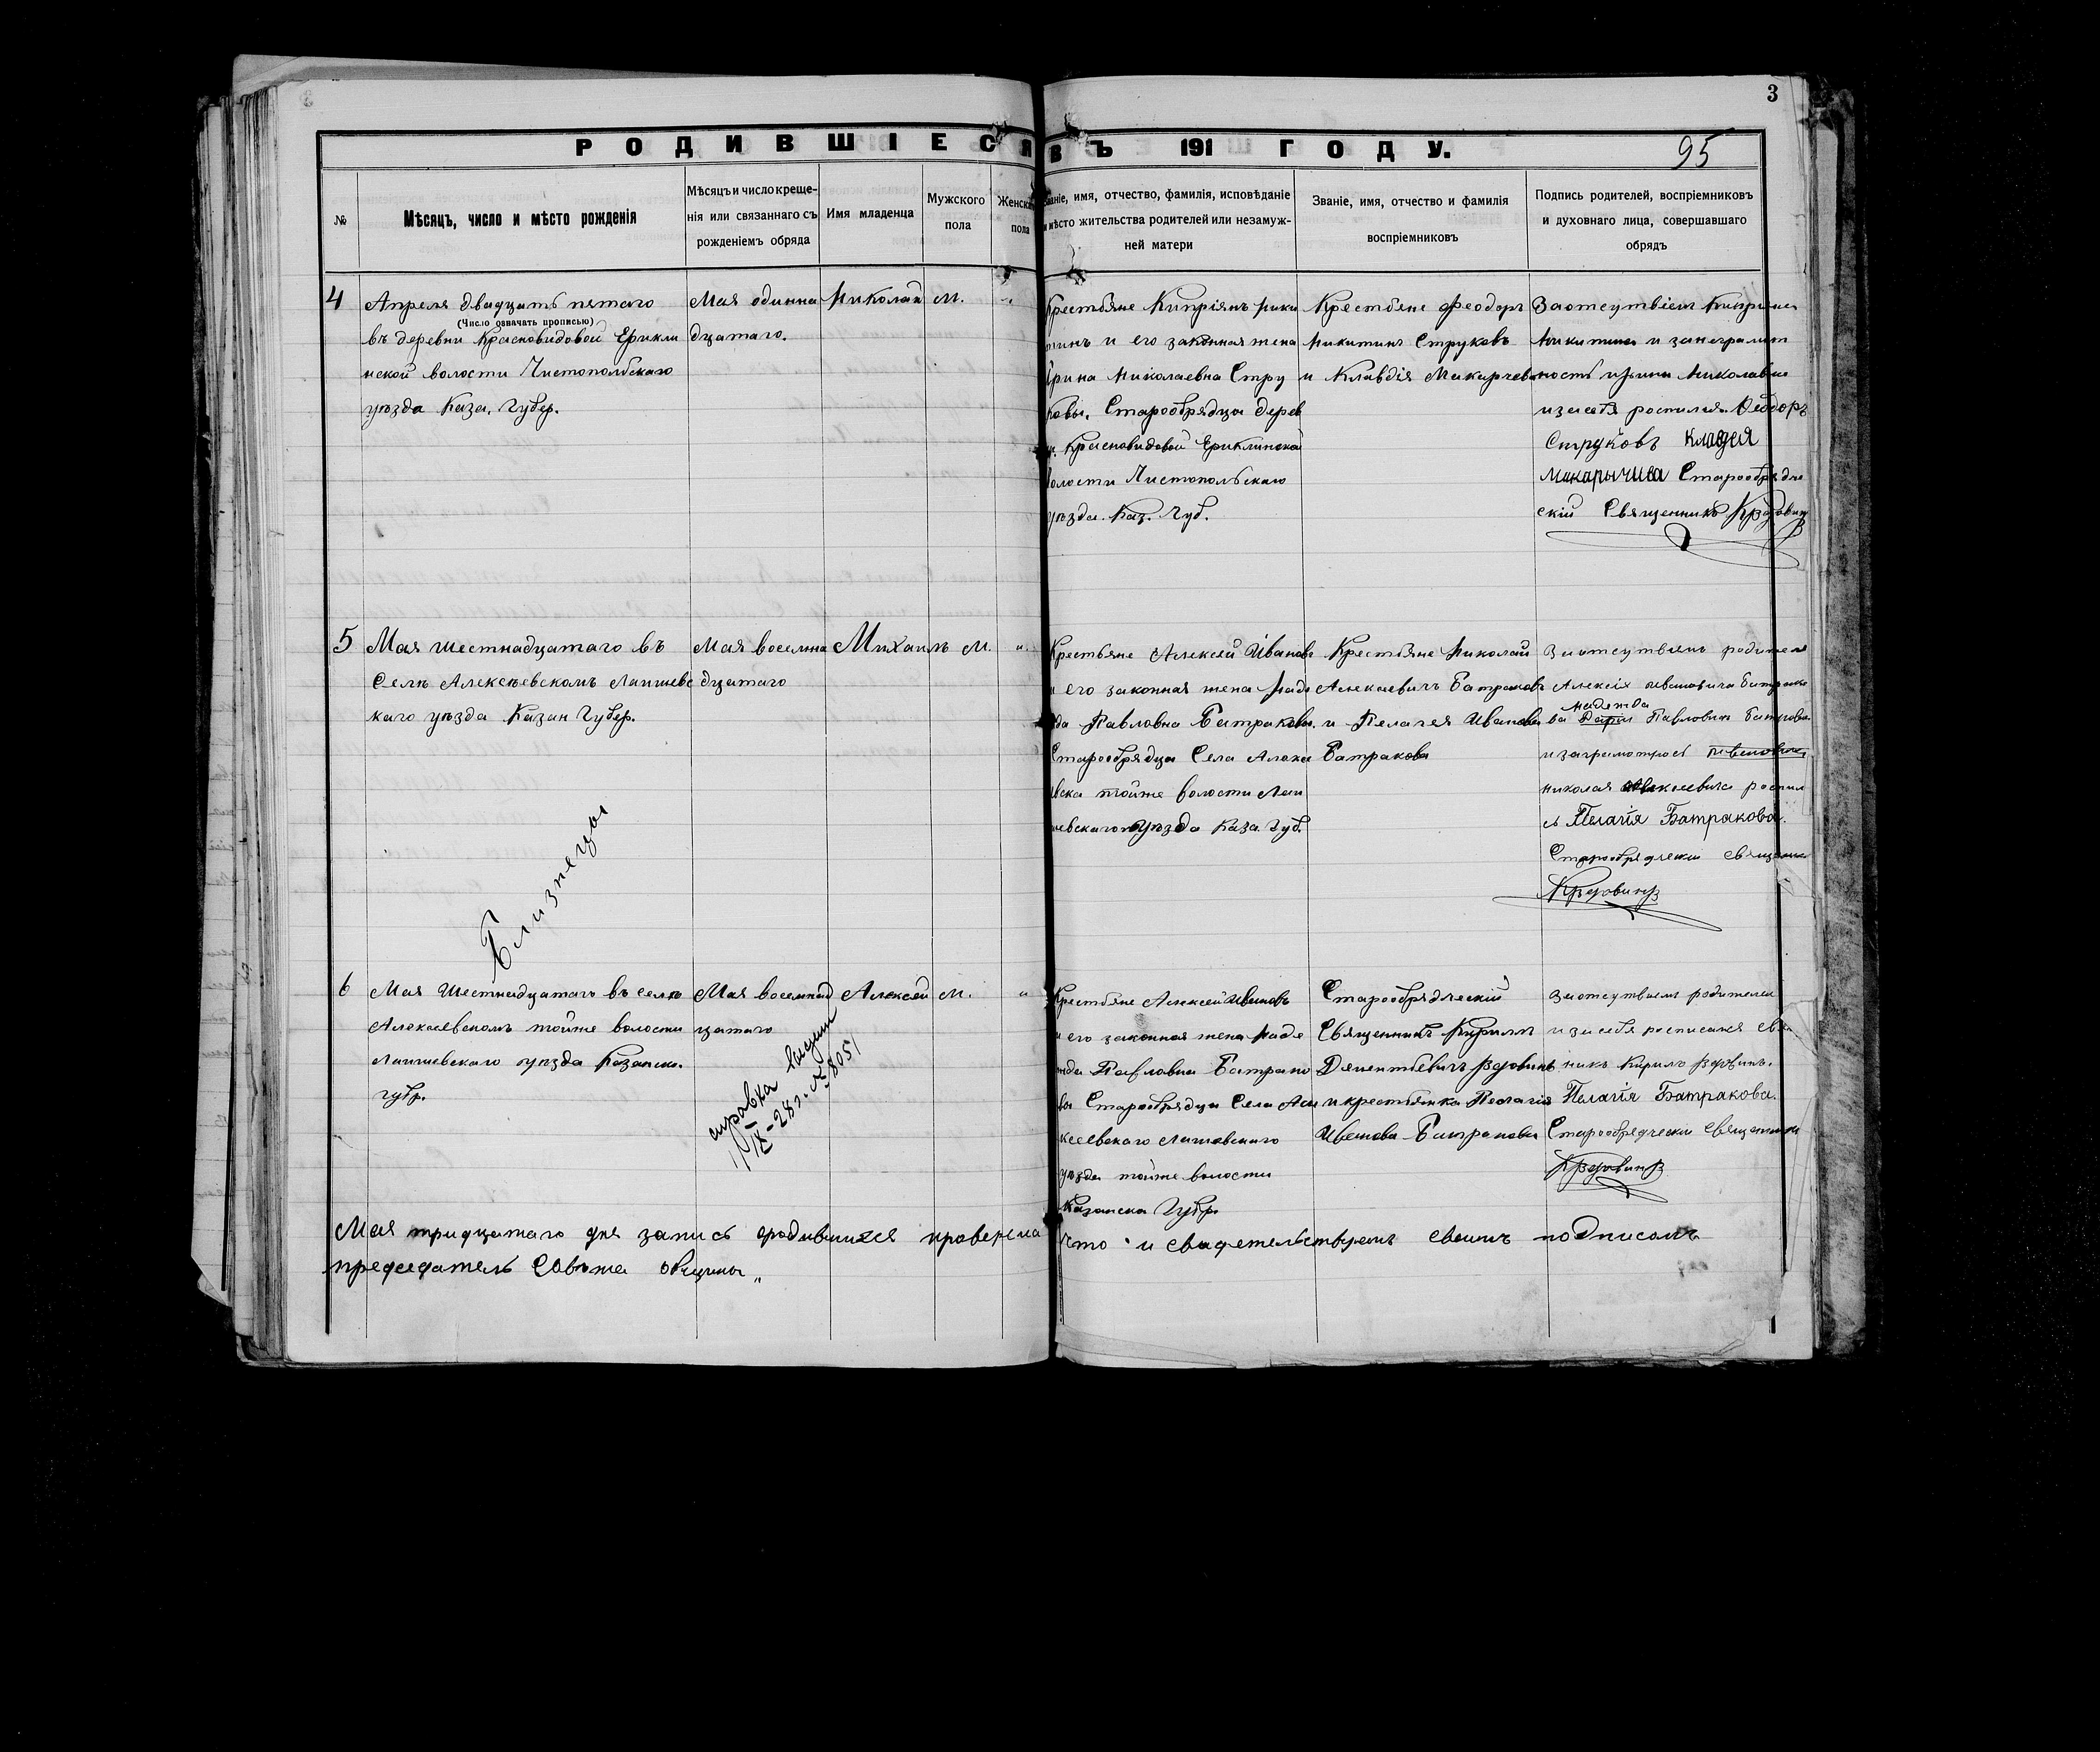 3
РОДИВШІЕСЯ ВЪ 191 ГОДУ.
95
№
Мѣсяцъ, число и мѣсто рожденія
Мѣсяцъ и число креще-
нія или связаннаго съ
рожденіемъ обряда
Имя младенца
Мужского
пола
Женска
пола
Званіе, имя, отчество, фамилія, исповѣданіе
и мѣсто жительства родителей или незамуж-
ней матери
Званіе, имя, отчество и фамилія
воспріемниковъ
Подпись родителей, воспріемниковъ
и духовнаго лица, совершавшаго
обрядъ
4
Апреля двадцать пятаго
(Число означать прописью)
въ деревни Красновидовой Ерикли
нской волости Чистопольскаго
уѣзда Каза. Губер.
Мая одинна
дцатаго.
Николай
М.
Крестьяне Кипріянъ Ники
тинъ и его законная жена
Ирина Николаевна Стру
ковы. Старообрядцы дерев
Красновидовой Ериклинской
волости Чистопольскаго
уѣзда. Каз. Губ.
Крестьяне Феодоръ
Никитинъ Струковъ
и Клавдія Макарчева
За отсутвіем Кипріяна
Никитина и за неграмот
ность Ирины Николавны
и за себя роспился Феодоръ
Струковъ Клавдея
Макарычива Старообрядче
скій Священникъ
5
Мая шестнадцатаго въ
Селѣ Алексѣевскомъ Лаишевс
каго уѣзда Казан Губер.
Мая восемна
дцатаго
Михаилъ
М.
Крестьяне Алексей Иванов
и его законная жена Наде
жда Павловна Батракова.
Старообрядцы Села Алекс
евска тойже волости Лаи
шевскаго уѣзда Каза. Губ.
Крестьяне Николай
Алексаевичъ Батраковъ
и Пелагея Иванова
Батракова
За отсутвіемъ родителя
Алексія Ивановича Батрако
надежда
ва Дарьи Павловны Батракова
и заграмотност
николая алексеевича роспил
с Пелагія Батракова.
Старообрядческий священник
Близнецы
6
Мая Шестнадцатаго въ селѣ
Алексеевскомъ тойже волости
Лаишевскаго уѣзда Казанско.
губр.
Мая восемнад
цатаго
Алексей
М.
справка выдан
11/IX-28 г. № 8051
Крестьяне Алексей Ивановъ
и его законная жена Наде
жда Павловна Батрако
вы Старообрядцы Села Але
ксеевскаго Лаишевскаго
уѣзда тойже волости
Казанска Губр.
Старообрядческій
Священникъ Кирилъ
Дементьевичъ Вдовинъ
и крестьянка Пелагія
Иванова Батракова
За отсутвием родителей
и за себя росписался свя
никъ Кирилъ Вдовинъ.
Пелагія Батракова.
Старообрядчески Священник
Мая тридцатаго дня запись родившихся проверена Что и свидетельствуемъ своимъ подписомъ
председатель Совѣта общины „